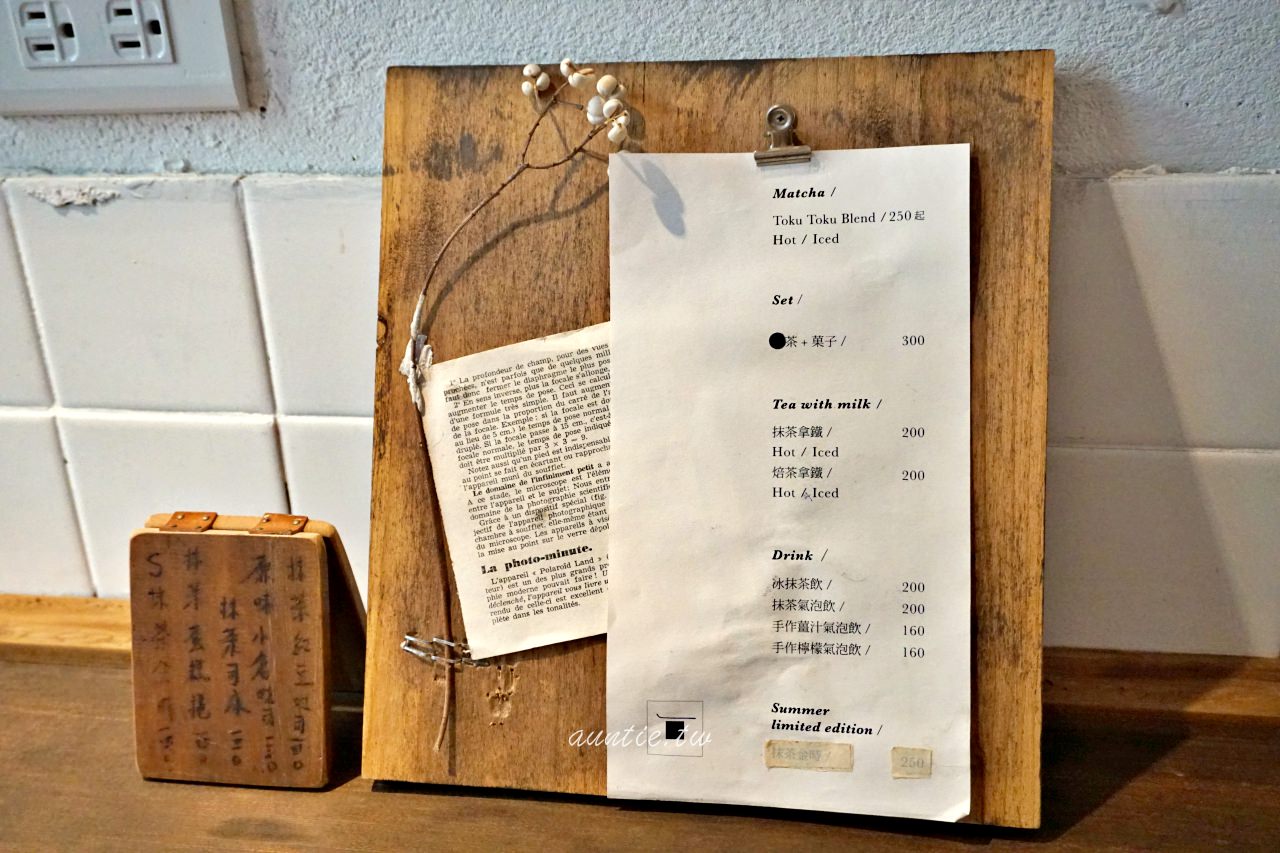 Matcha /
Toku Toku Blend / 250起
Hot / Iced
Set /
茶 + 菓子 / 300
Tea with milk /
抹茶拿鐵 / 200
Hot / Iced
焙茶拿鐵 / 200
Hot / Iced
Drink /
冰抹茶飲 / 200
抹茶氣泡飲 / 200
手作薑汁氣泡飲 / 160
手作檸檬氣泡飲 / 160
Summer
limited edition /
抹茶金時 / 250
1° La profondeur de champ, pour des vues
prochées, n'est parfois que de quelques mill
faut donc fermer le diaphragme le plus pos
2° En sens inverse, plus la focale s'allonge,
augmenter le temps de pose. Ceci se calcul
d'une formule très simple. Il faut augmen
de pose dans la proportion du carré de l'
de la focale. Exemple : si la focale est do
au lieu de 5 cm.) le temps de pose normal
druplé. Si la focale passe à 15 cm., c'est-
focale normale, le temps de pose indiqué
doit être multiplié par 3 × 3 = 9.
Notez aussi qu'un pied est indispensabl
au point se fait en écartant ou rapprocha
l'appareil muni du soufflet.
Le domaine de l'infiniment petit a a
A ce stade, le microscope est l'élém
entre l'appareil et le sujet: Nous entr
domaine de la photographie scientifi
Grâce à un dispositif spécial (fig.
jectif de l'appareil photographique
chambre à soufflet, elle-même étant
du microscope. Les appareils à vis
la mise au point sur le verre dépol
La photo-minute.
L'appareil « Polaroid Land » (
teur) est un des plus grands pr
phie moderne pouvait faire ! U
déclenché, l'appareil vous livre u
rendu de celle-ci est excellent
plète dans les tonalités.
抹茶紅豆吐司
原味小倉吐司
抹茶司康
抹茶蛋糕捲
auntie.tw